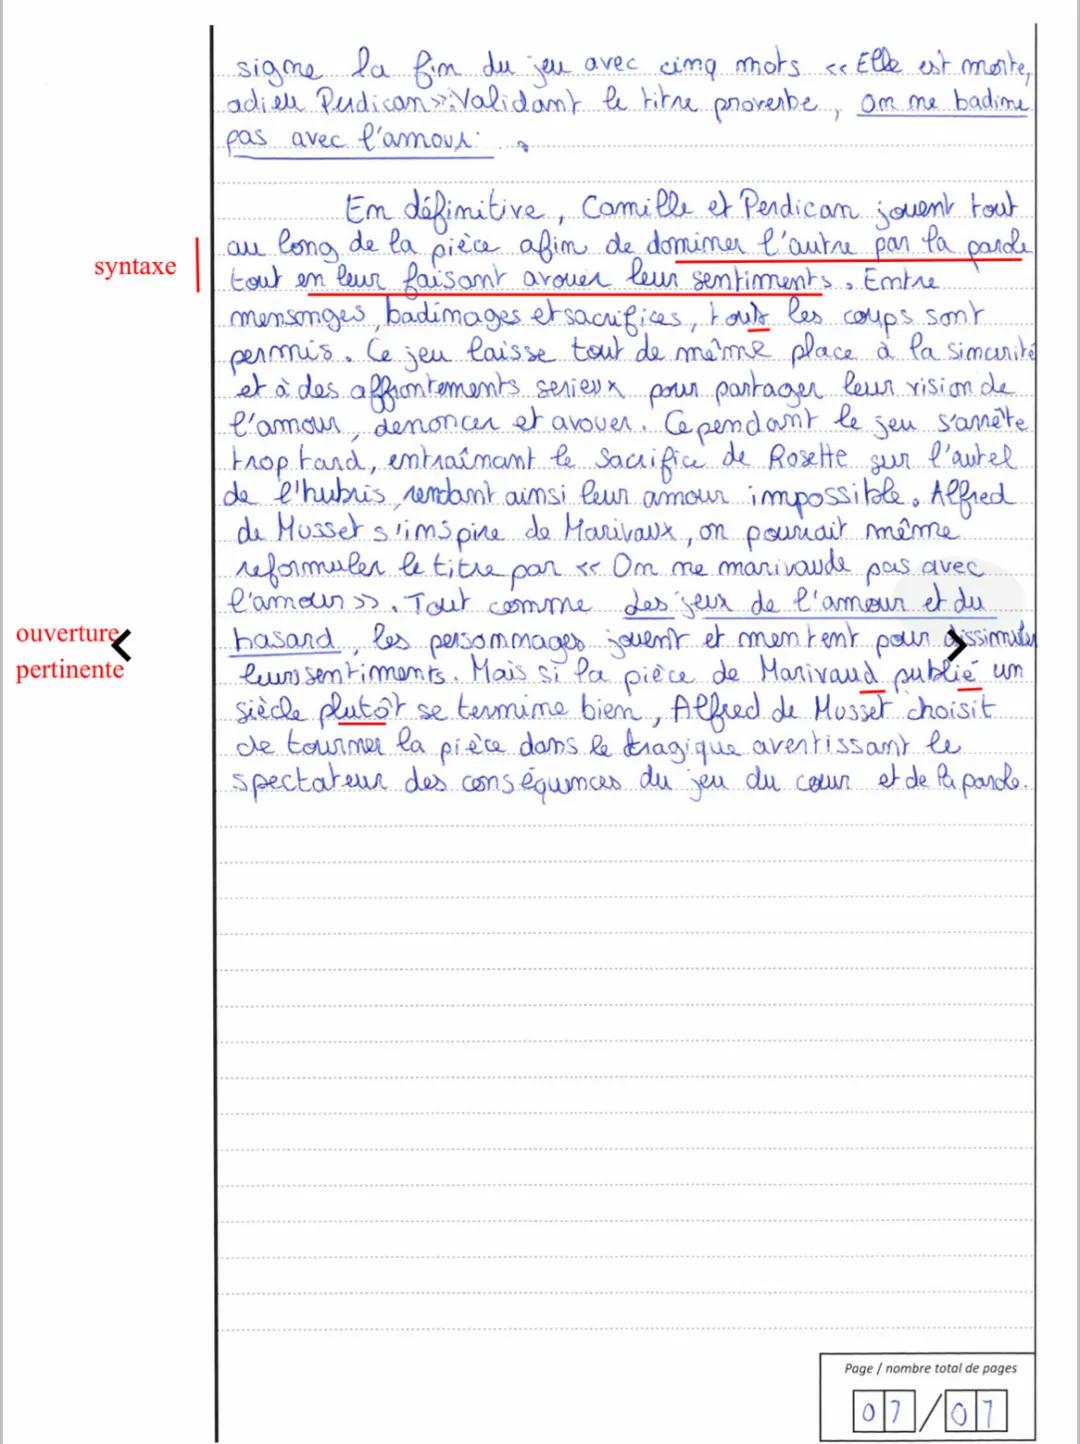 signe la fin du jeu avec cinq mots « Elle est morte,
adieu Perdican ». Validant le titre proverbe, On ne badine
pas avec l'amour.
En définitive, Camille et Perdican jouent tout
au long de la pièce afin de dominer l'autre par la parole
syntaxe
tout en leur faisant avouer leur sentiments. Entre
mensonges, badinages et sacrifices, touts les coups sont
permis. Ce jeu laisse tout de même place à la sincérité
et à des affrontements serieux pour partager leur vision de
l'amour, denoncer et avouer. Cependant le jeu s'arrête
trop tard, entraînant le sacrifice de Rosette sur l'autel
de l'hubris, rendant ainsi leur amour impossible. Alfred
de Musset s'inspire de Marivaux, on pourrait même
reformuler le titre par « On ne marivaude pas avec
l'amour ». Tout comme des jeux de l'amour et du
ouverture pertinente
hasard, les personnages jouent et mentent pour dissimuler
leurs sentiments. Mais si la pièce de Marivaud publié un
siècle plutôt se termine bien, Alfred de Musset choisit
de tourner la pièce dans le tragique avertissant le
spectateur des conséquences du jeu du cœur et de la parole.
Page / nombre total de pages
07/07